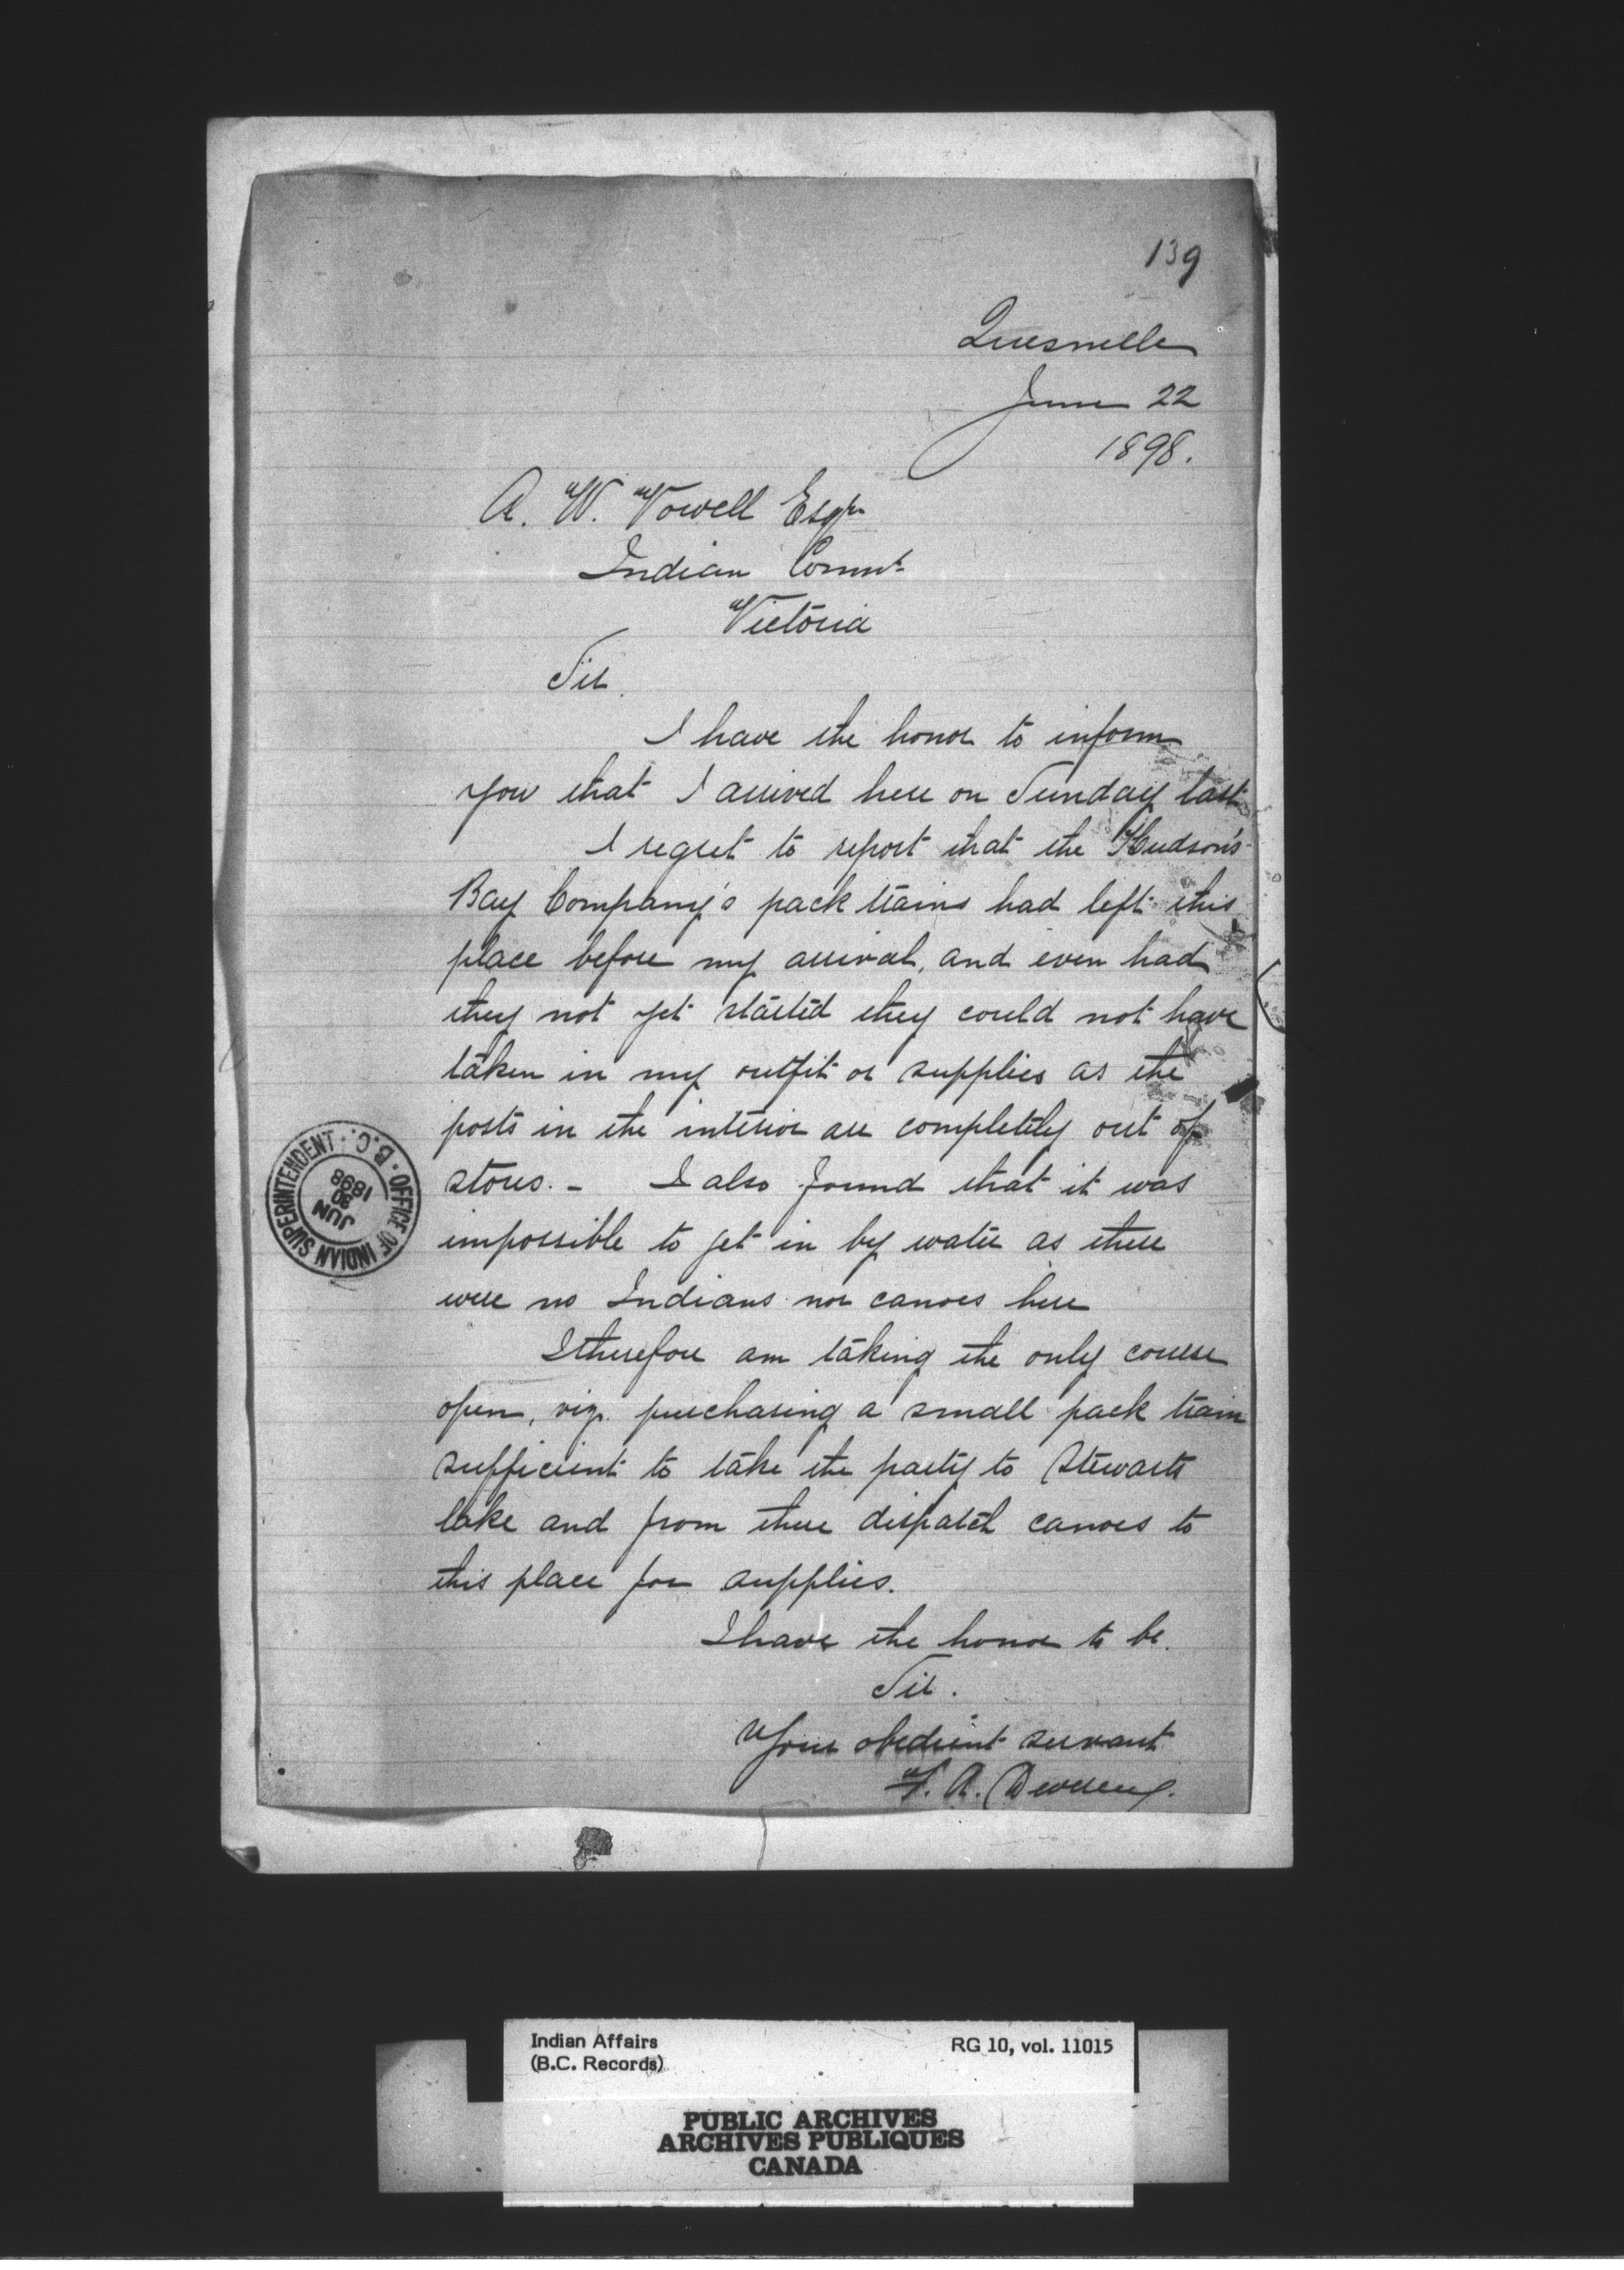 139
Quesnelle
June 22
1898.
A. W. Vowell Esqr
Indian Commr
Victoria
Sir
I have the honor to inform
you that I arrived here on Sunday last
I regret to report that the Hudson's
Bay Company's pack trains had left this
place before my arrival, and even had
they not yet started they could not have
taken in my outfit or supplies as the
posts in the interior are completely out of
stores. - I also found that it was
impossible to get in by water as there
were no Indians nor canoes here
I therefore am taking the only course
open, viz. purchasing a small pack train
sufficient to take the party to Stewarts
lake and from there dispatch canoes to
this place for supplies.
I have the honor to be.
Sir.
Your obedient servant
F. A. Devereux.
OFFICE OF INDIAN SUPERINTENDENT. B.C.
JUN
30
1898
Indian Affairs RG 10, vol. 11015
(B.C. Records)
PUBLIC ARCHIVES
ARCHIVES PUBLIQUES
CANADA